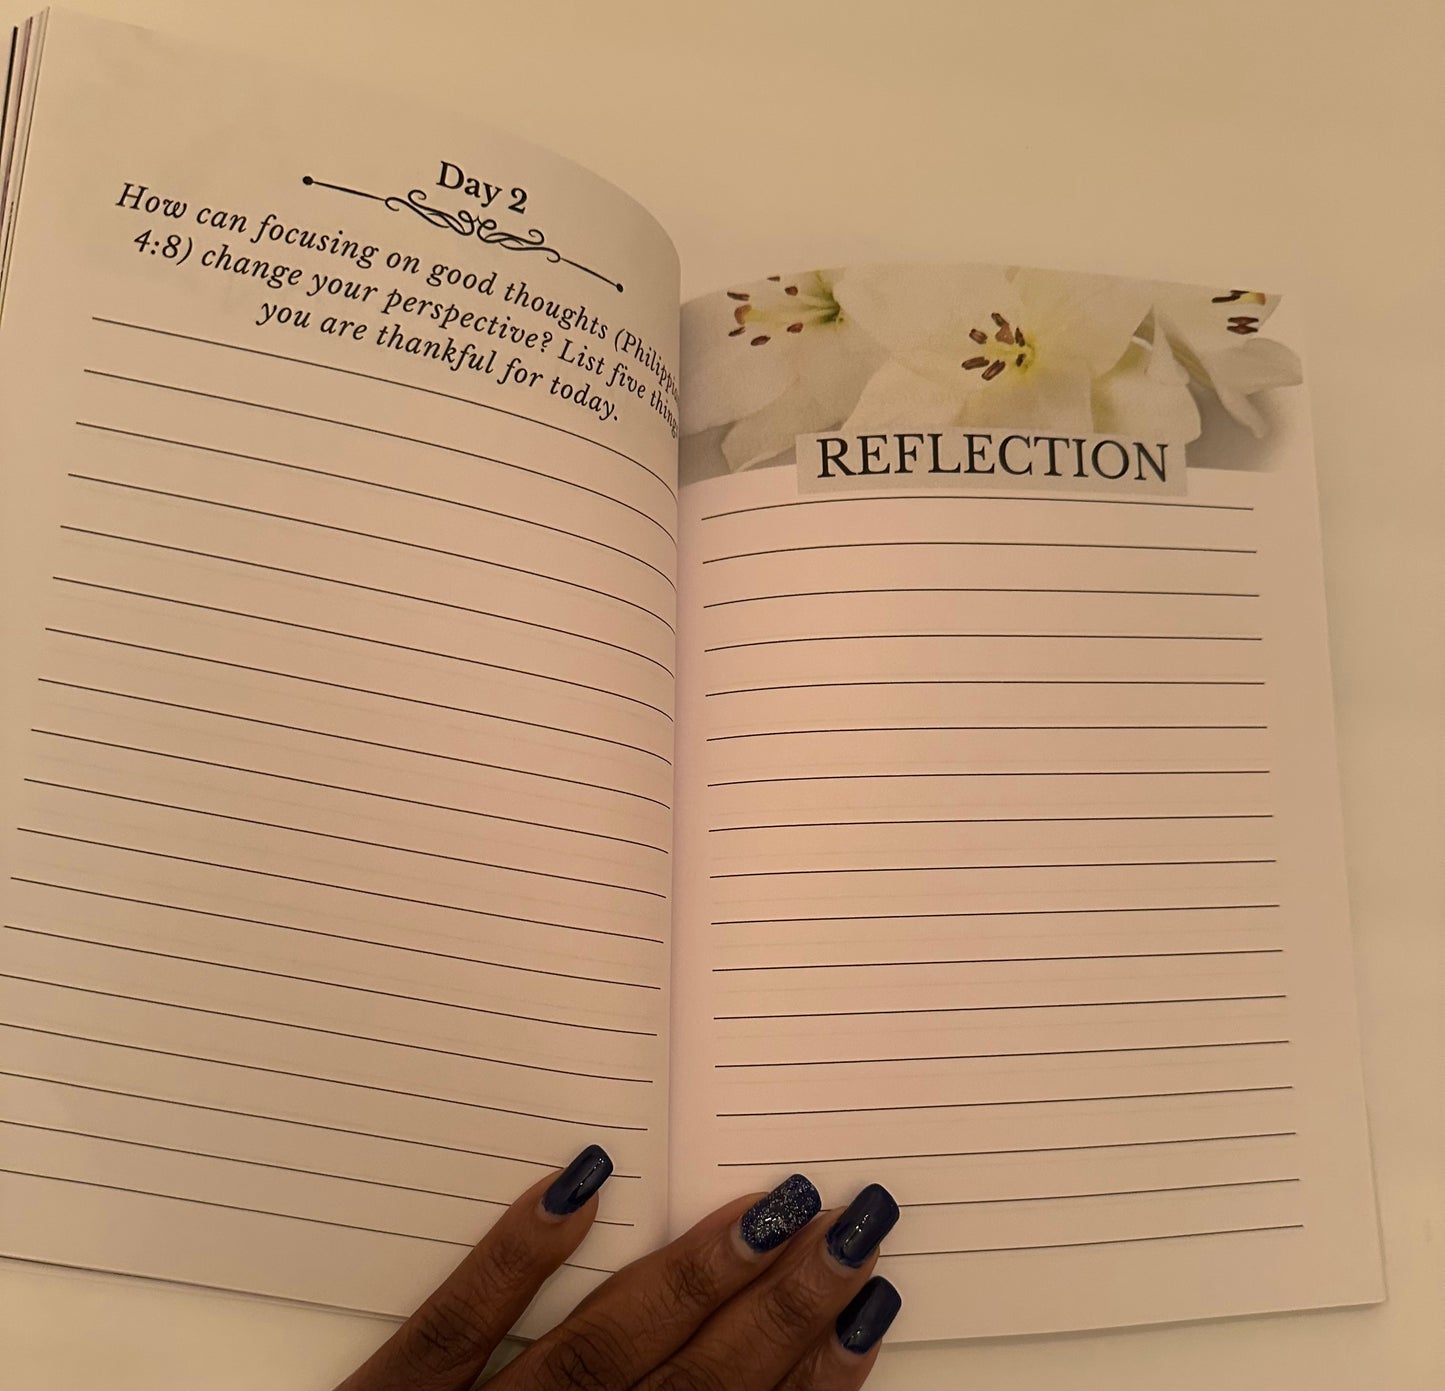 Day 2
How can focusing on good thoughts (Philippi
4:8) change your perspective? List five thing
you are thankful for today.
REFLECTION